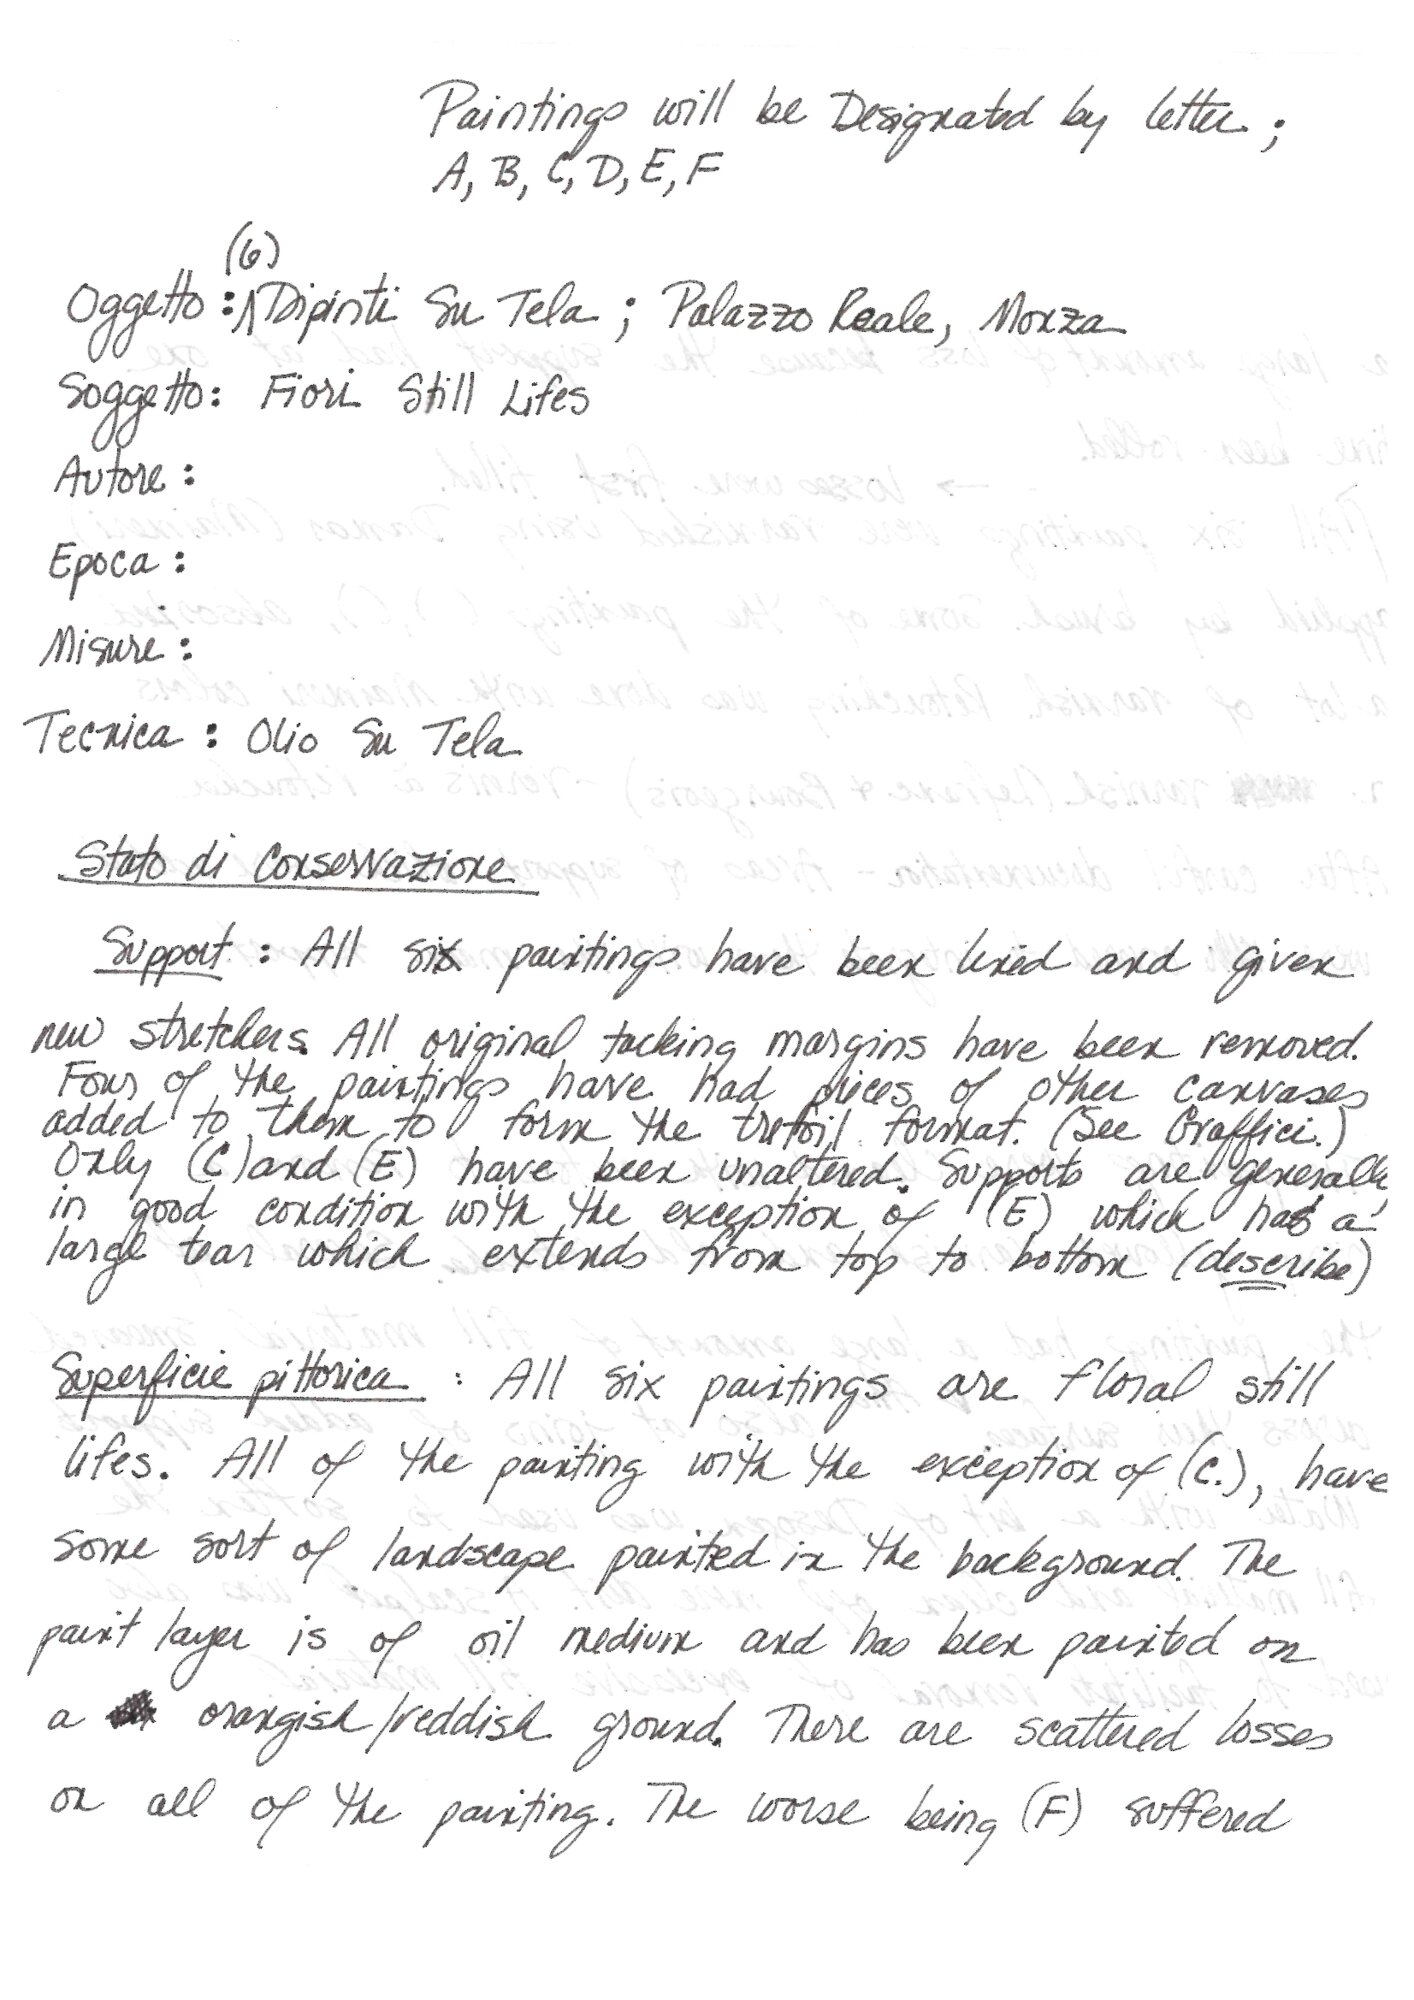 Paintings will be Designated by letter;
A, B, C, D, E, F
(6)
Oggetto: Dipinti Su Tela; Palazzo Reale, Monza
Soggetto: Fiori Still Lifes
Autore:
Epoca:
Misure:
Tecnica: Olio Su Tela
Stato di Conservazione
Support: All six paintings have been lined and given
new stretchers. All original tacking margins have been removed.
Four of the paintings have had pieces of other canvases
added to them to form the trefoil format. (See Graffici.)
Only (C) and (E) have been unaltered. Supports are generally
in good condition with the exception of (E) which has a
large tear which extends from top to bottom (describe)
Superficie pittorica: All six paintings are floral still
lifes. All of the painting with the exception of (C.), have
some sort of landscape painted in the background. The
paint layer is of oil medium and has been painted on
a orangish/reddish ground. There are scattered losses
on all of the painting. The worse being (F) suffered